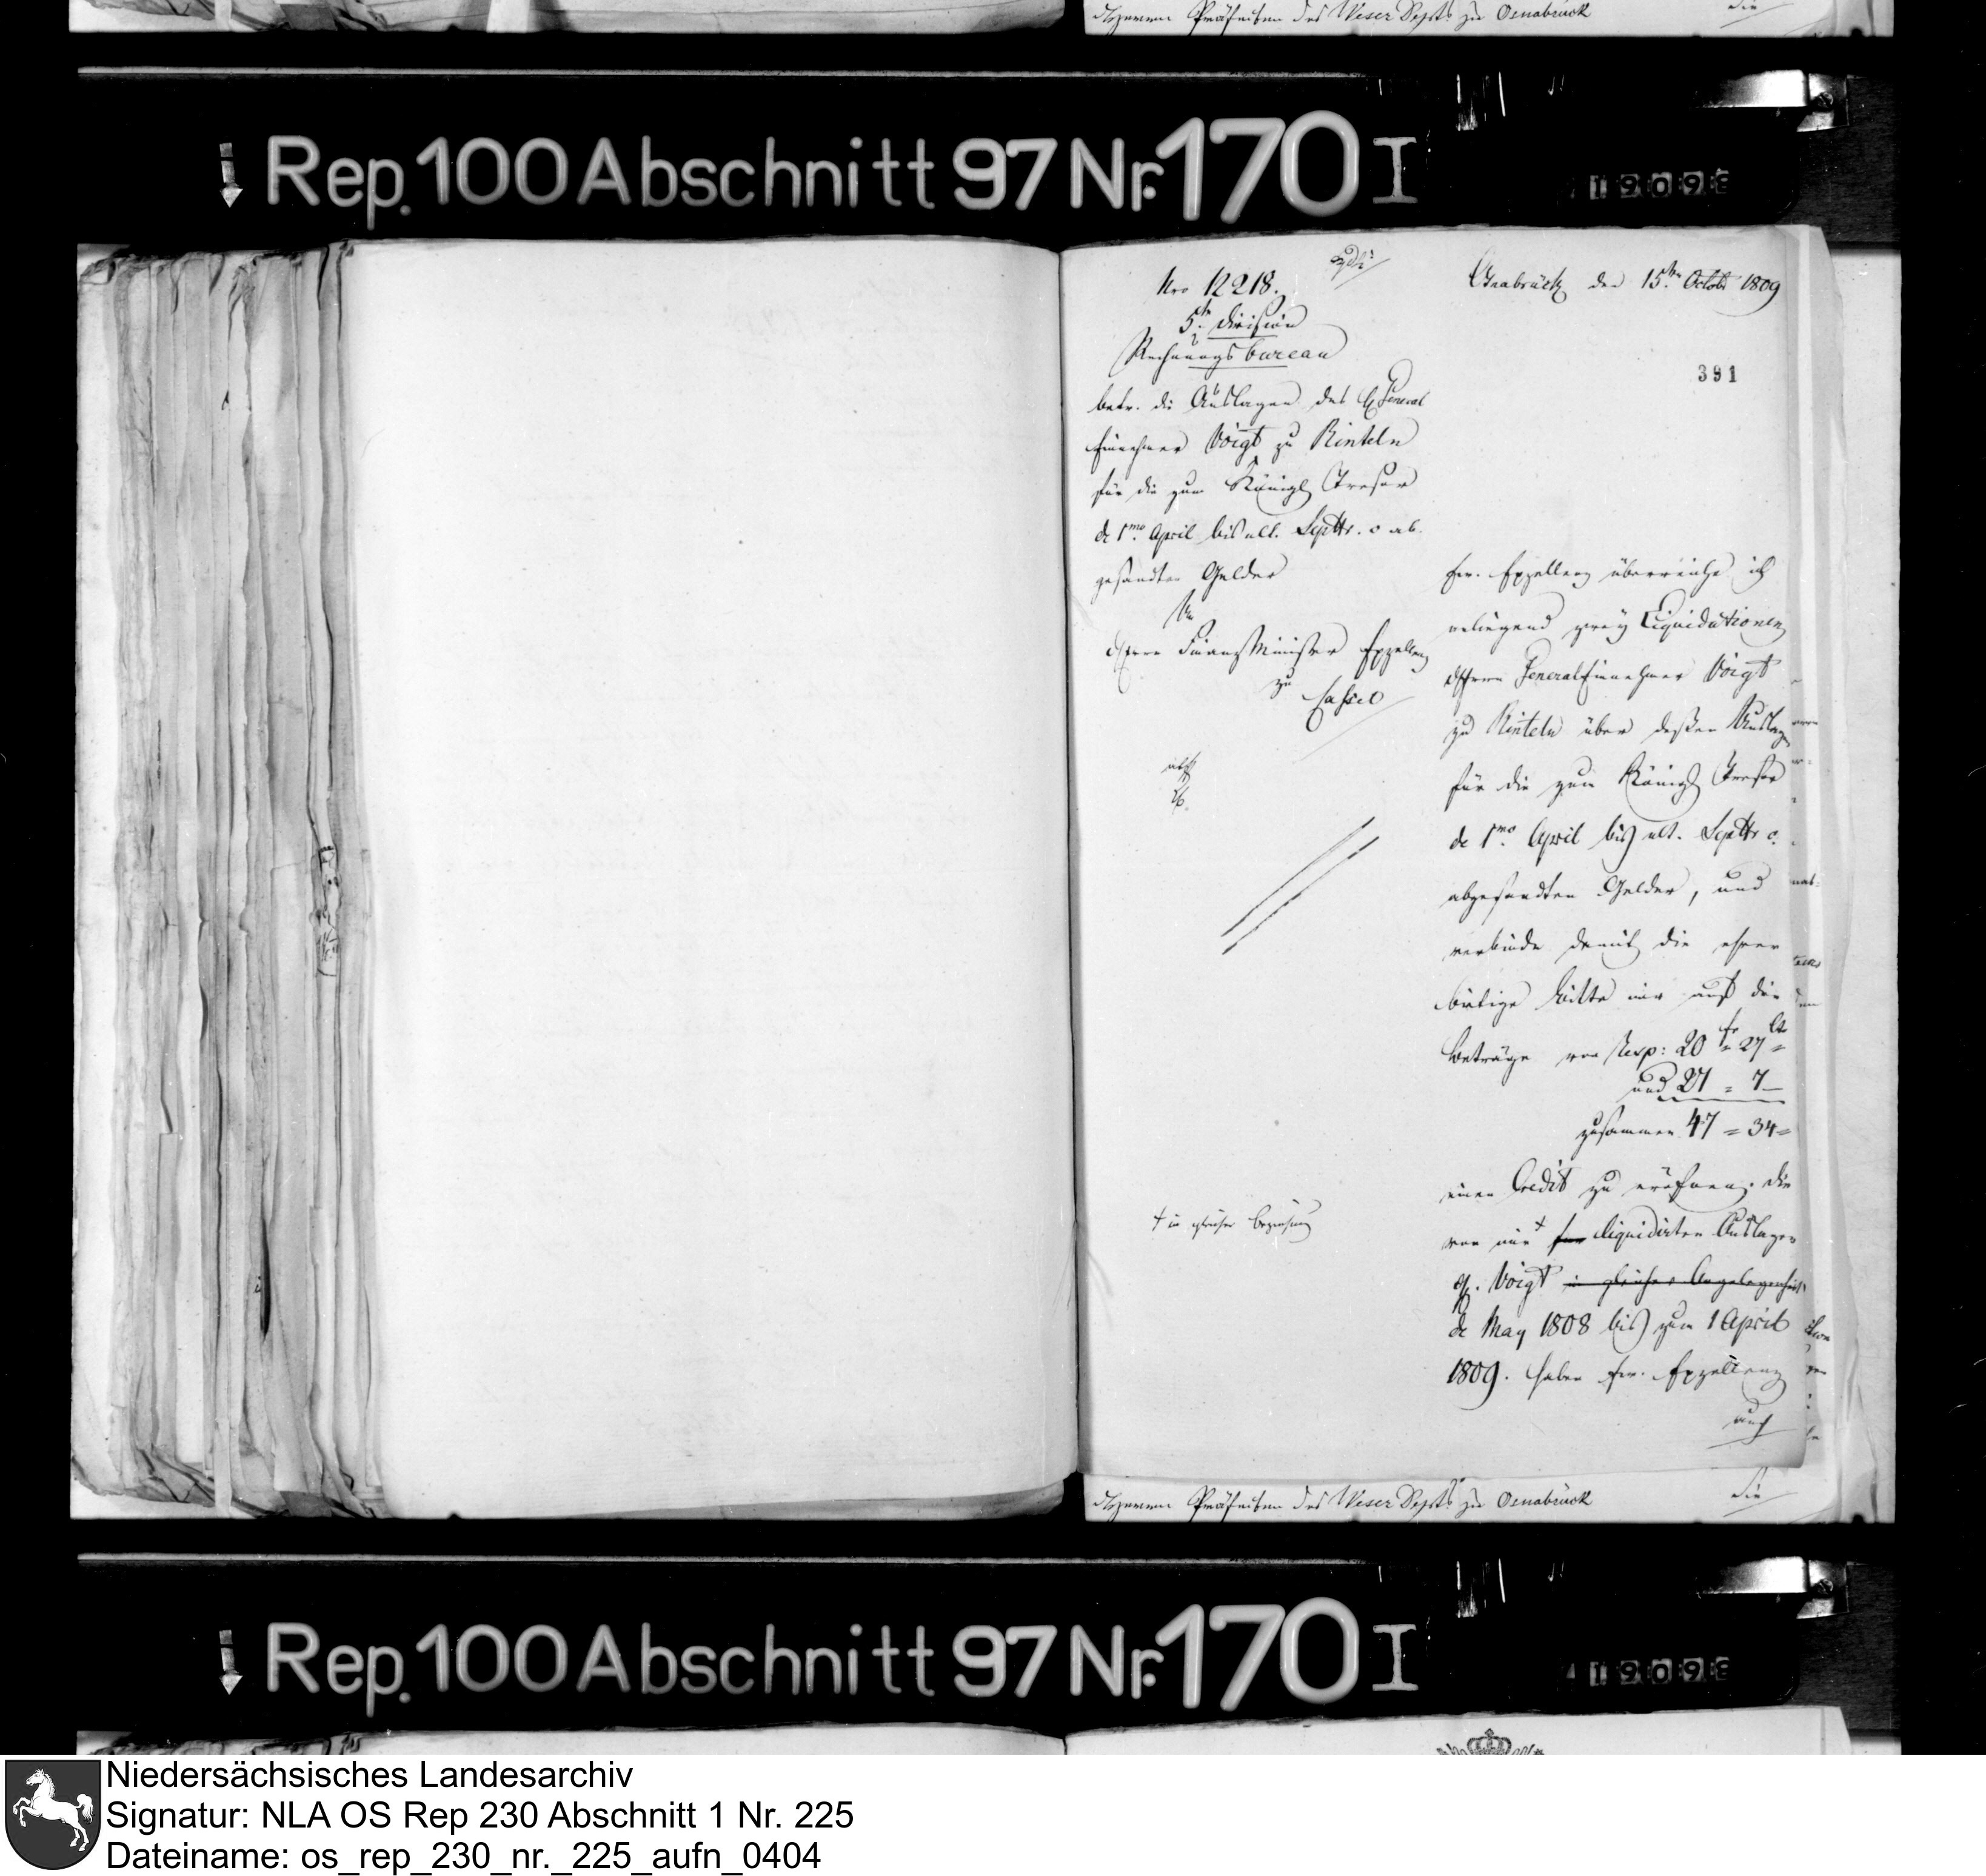 Herrn Präfecten des Weser Depts. zu Osnabrück
die
Rep. 100 Abschnitt 97 Nr. 170 I
19098
Nro 12218.
5te Division
Rechnungsbureau
betr. die Auslagen des General
Einnehmer Voigt zu Rinteln
für die zum Königl. Tresor
de 1mo April bis ult. Septbr. c ab-
gesandten Gelder
An
Herrn Finanz Minister Exzellenz
zu Cassel
† in gleicher Beziehung
Osnabrück den 15ten Octobr 1809
391
Ew. Exzellenz überreiche ich
anliegend zwey Liquidationen
Herrn General Einnehmer Voigt
zu Rinteln über deßen Auslagen
für die zum Königl. Tresor
de 1mo April bis ult. Septbr c.
abgesandten Gelder, und
verbinde damit die ehrer
bietige Bitte mir auf die
Beträge von Resp: 20 fr = 27 Ct =
und 27 = 7 —
zusammen 47 = 34 =
einen Credit zu eröfnen. Die
von mir † liquidirten Auslagen
H. Voigt in gleicher Angelegenheit
de May 1808 bis zum 1 April
1809. haben Ew. Exzellenz
auch
Herrn Präfecten des Weser Depts. zu Osnabrück
die
Rep. 100 Abschnitt 97 Nr. 170 I
19098
Niedersächsisches Landesarchiv
Signatur: NLA OS Rep 230 Abschnitt 1 Nr. 225
Dateiname: os_rep_230_nr._225_aufn_0404